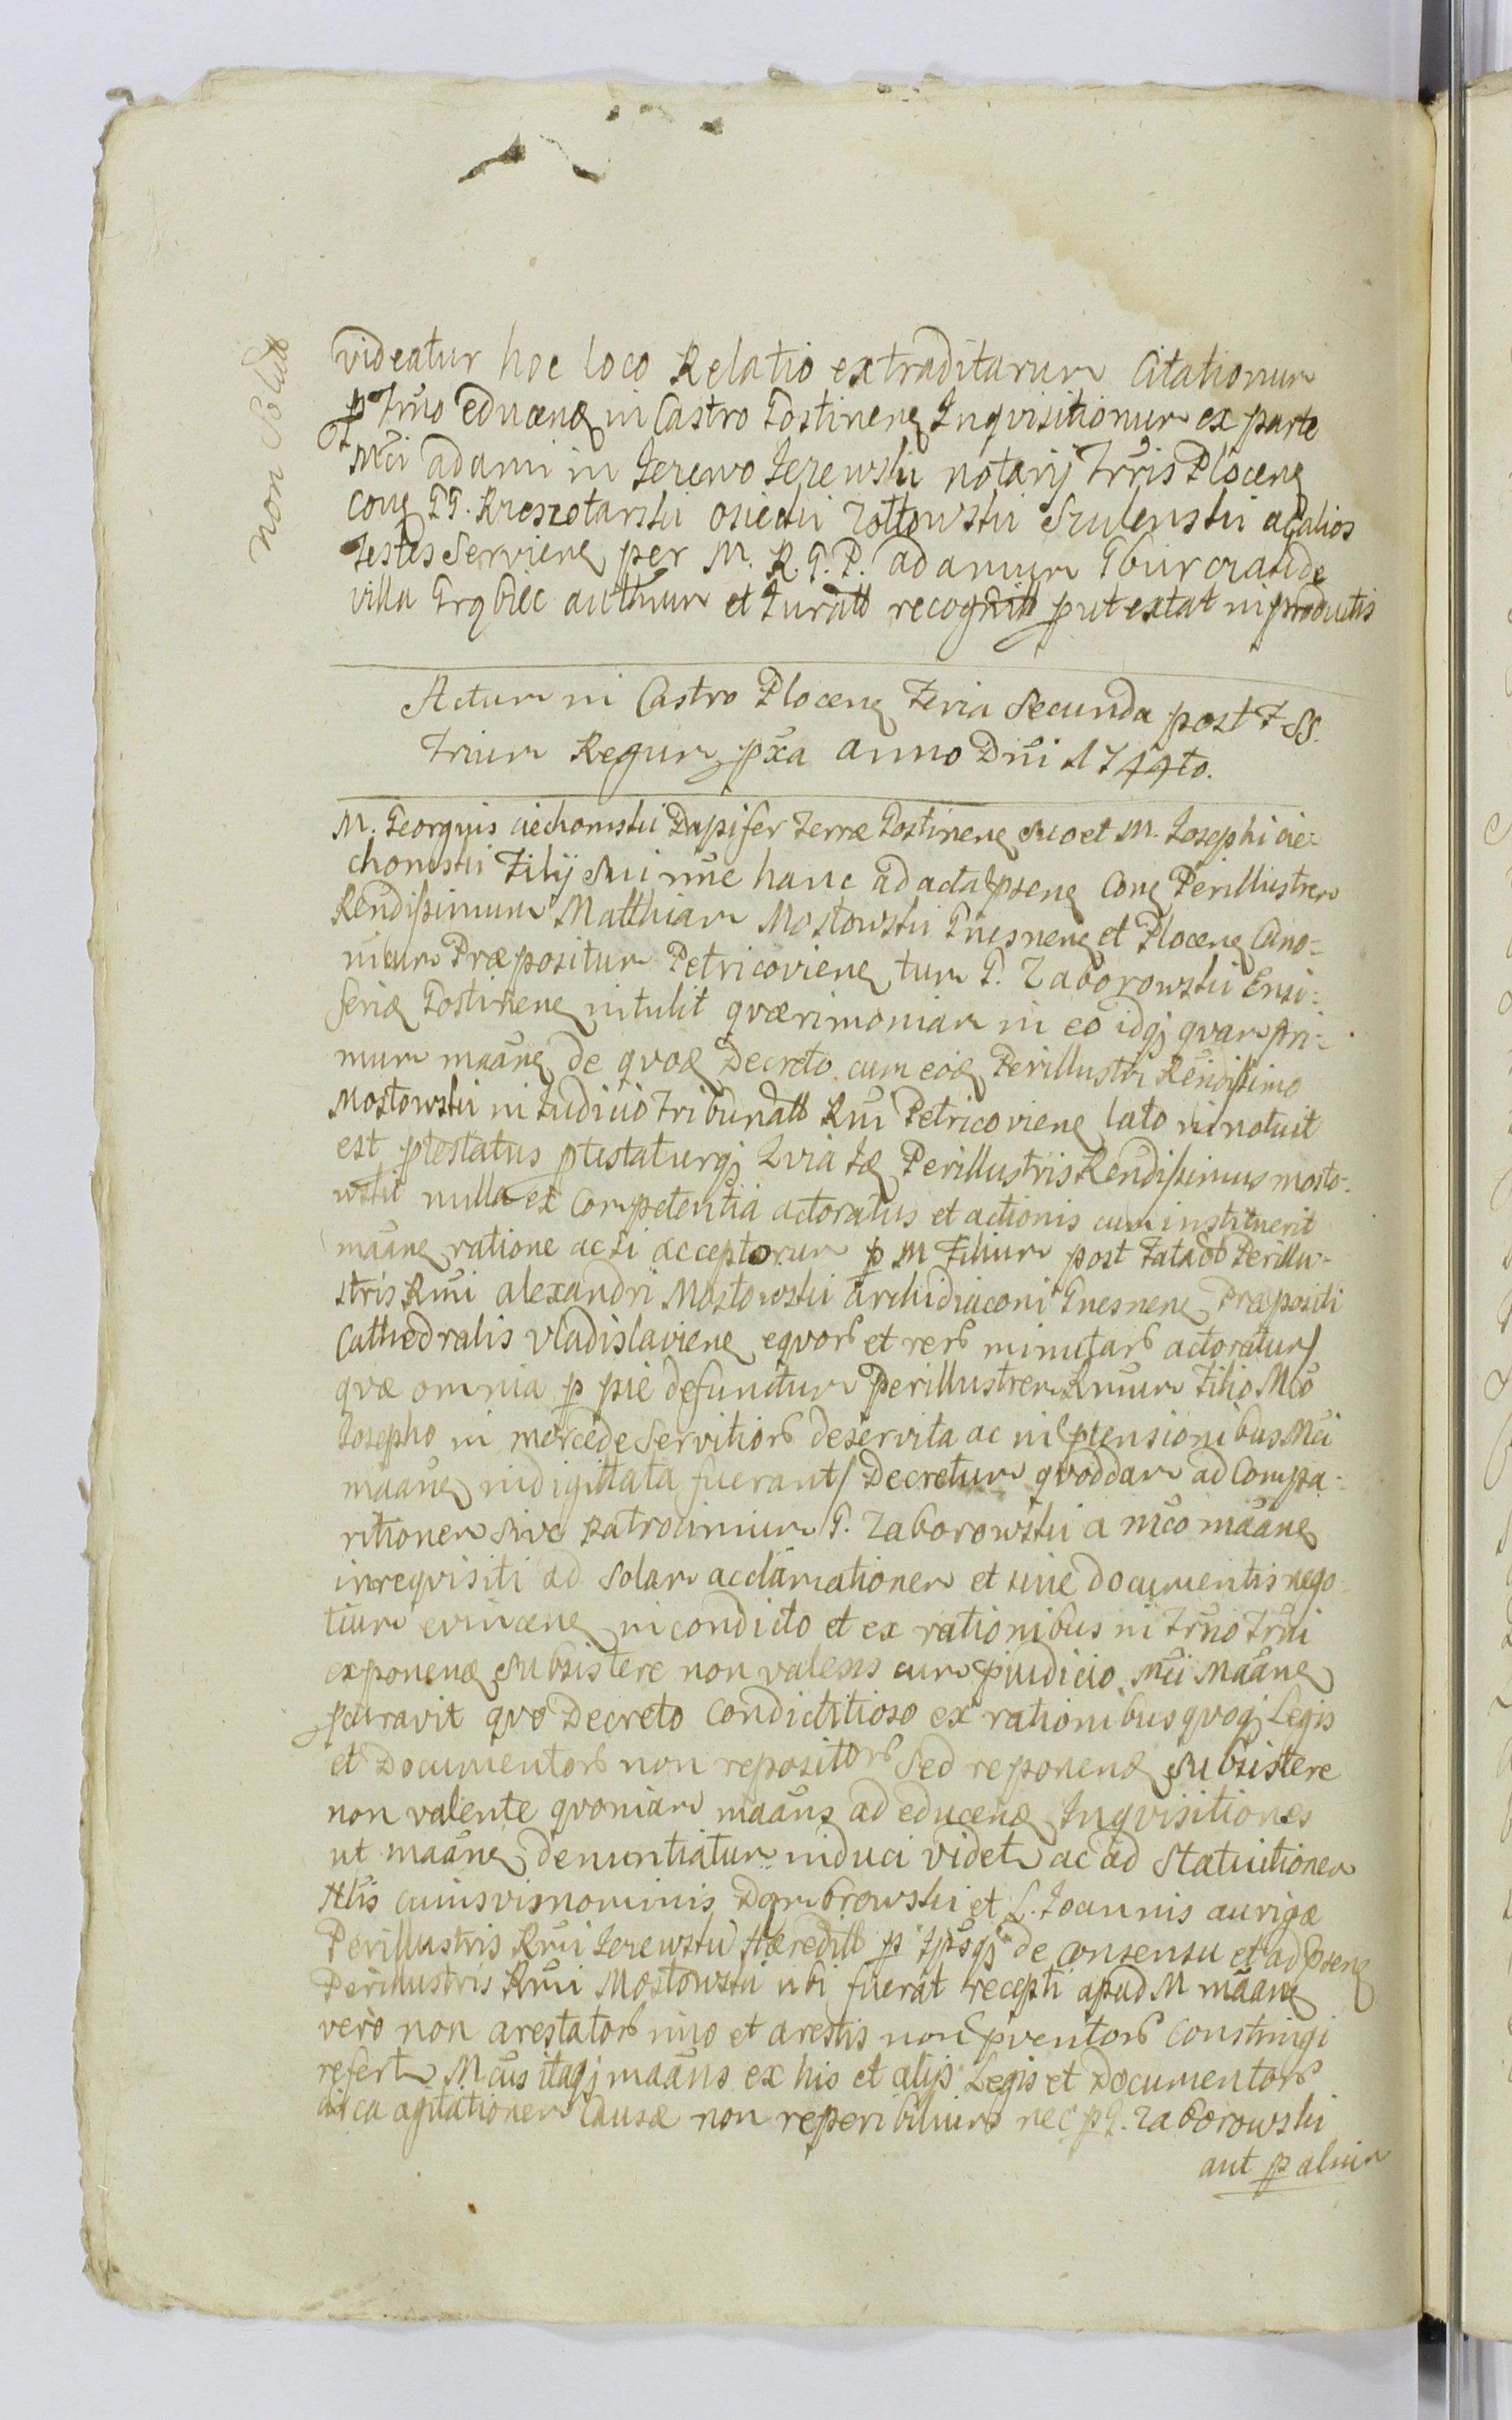 non Solut
videatur hoc loco Relatio extraditarum Citationum
p Trno educend in Castro Gostinen Inqvisitionum ex parte
Mci Adami in Jezewo Jezewski Notarij Trris Plocen
con GG. Kreszotarski Osiecki Zottowski Szulenski ac alios
Testes Servien per M. R. G. P. Adamum Gbur cia de
villa Grąbiec authum et Juratt recognit put extat in productis
Actum in Castro Plocen Feria Secunda post F SS.
Trium Regum pxa Anno Dni 1744to.
M. Georgius Ciechomski Dapifer Terræ Gostinen suo et M. Josephi Cie=
chomski Filij sui nne hanc ad acta psen Con Perillustrem
Rendissimum Matthiam Mostowski Gnesnen et Plocen Cano=
nicum Præpositum Petricovien tum G. Zaborowski Ensi=
ferid Gostinen intulit qværimoniam in eo idqj qvam pri=
mum maãne de qvod Decreto cum eod Perillustri Rendissimo
Mostowski in Judicio Tribunatt Rni Petricovien lato innotuit
est ptestatus ptestaturqj Qvia Id Perillustris Rendissimus Mosto=
wski nulla ex Competentia actoratus et actionis cum instituerit
maãne ratione acsi acceptorum p M Filium post Fata olo Perillu=
stris Rmi Alexandri Mostowski Archidiaconi Gnesnen Præpositi
Cathedralis Vladislavien eqvor et rer minutar actoratum/
qvæ omnia p pie defunctum Perillustrem Rmum Filio Mco
Josepho in mercede Servitior deservita ac in ptensionibus Mci
maãne indigittata fuerant/ Decretum qvoddam ad Compa=
ritionem sive Patrocinium G. Zaborowski a Mco maãne
inreqvisiti ad Solam acclamationem et sine documentis nego=
tium evincen in condicto et ex rationibus in Trno Trni
exponend subsistere non valens cum pjudicio Mci Maãne
pcuravit qvo Decreto Condictitioso ex rationibus qvoqj Legis
et Documentor non repositor Sed reponend subsistere
non valente qvoniam maãns ad educend Inqvisitiones
ut maãne denuntiatum induci videt ac ad Statuitionem
Nlis cuiusvis nominis Dąmbrowski et L. Joannis aurigæ
Perillustris Rmi Jezewski Hæreditt p Ipsqj de consensu et ad psen
Perillustris Rmi Mostowski ubi fuerãt recepti apud M maãne
vero non arestator imo et arestis non pventor constringi
refert Mcus itaqj maãns ex his et alijs Legis et Documentor
circa agitationem Causæ non reperibilium nec p G. Zaborowski
aut p alium